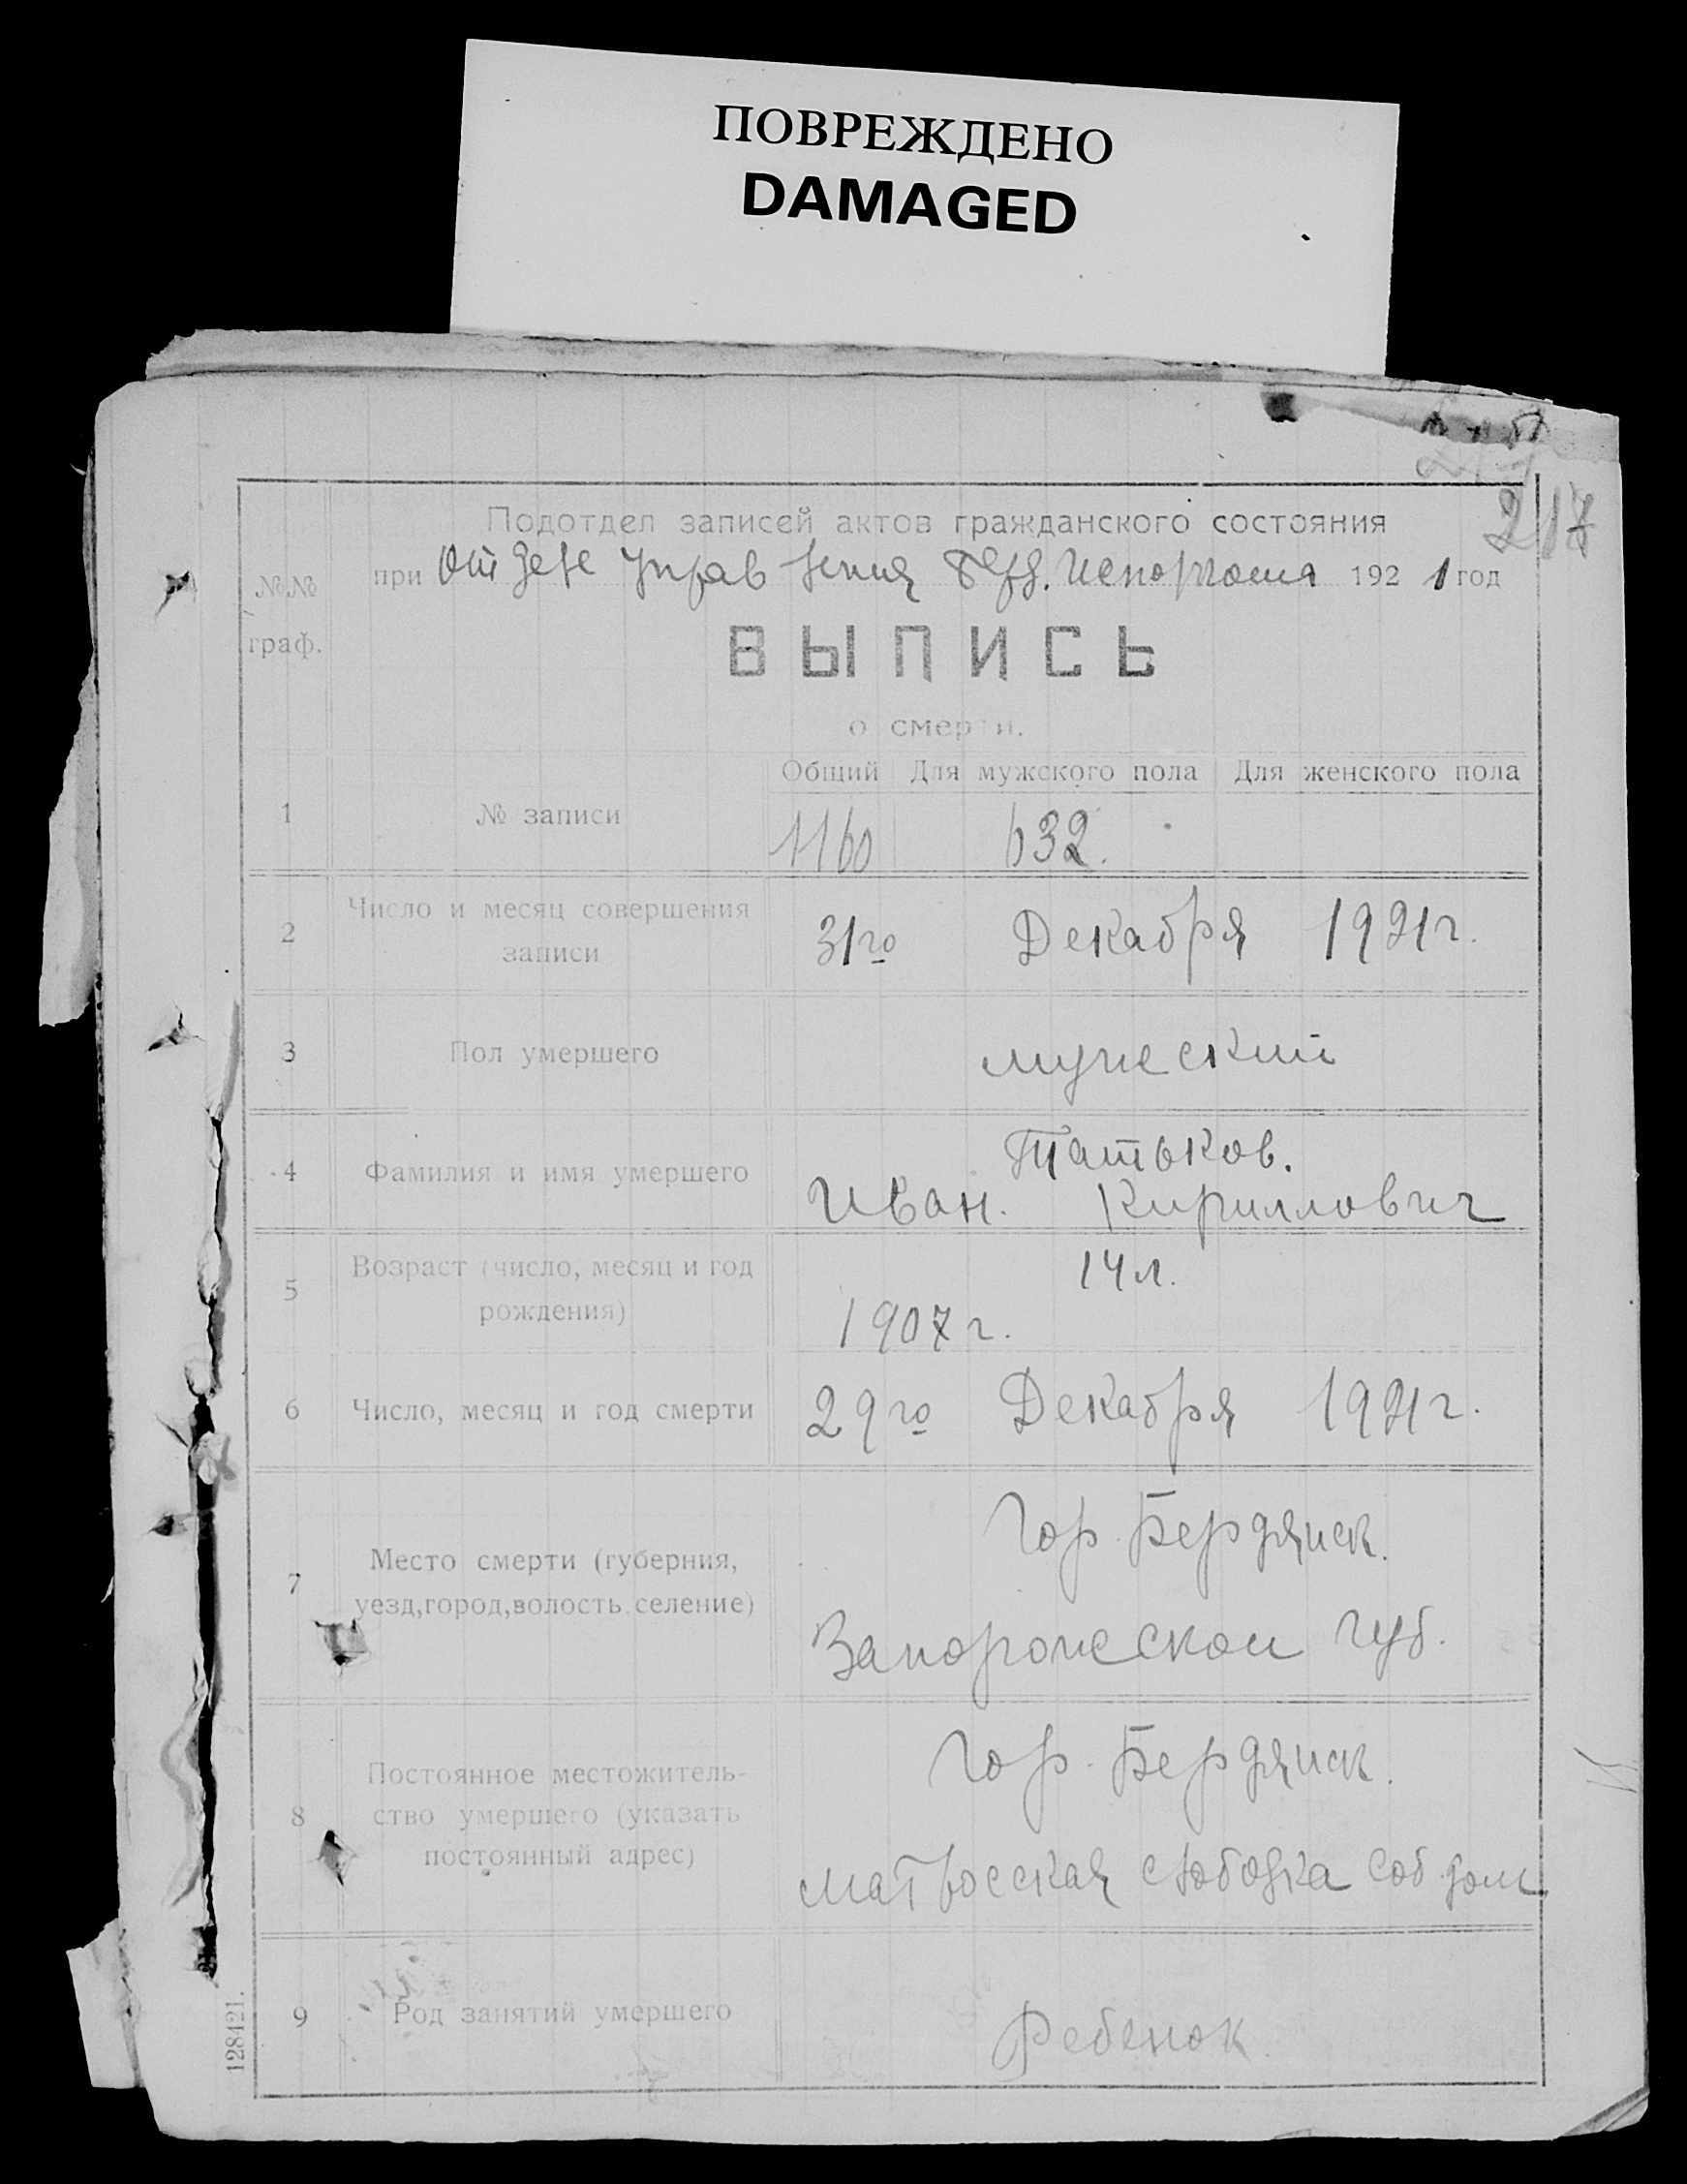 ПОВРЕЖДЕНО
DAMAGED
217
Подотдел записей актов гражданского состояния
при Отделе Управления Берд. Исполкома 1921 год
№№ граф.
ВЫПИСЬ
о смерти.
Общий Для мужского пола Для женского пола
1 № записи 1160 632.
2 Число и месяц совершения записи 31го Декабря 1921г.
3 Пол умершего мужеский
4 Фамилия и имя умершего Татьков.
Иван. Кириллович
5 Возраст (число, месяц и год рождения) 14 л.
1907 г.
6 Число, месяц и год смерти 29го Декабря 1921г.
7 Место смерти (губерния, уезд, город, волость, селение) Гор. Бердянск.
Запорожской губ.
8 Постоянное местожитель-
ство умершего (указать
постоянный адрес) Гор. Бердянск.
Матросская слободка соб. дом.
9 Род занятий умершего Ребенок.
128421.